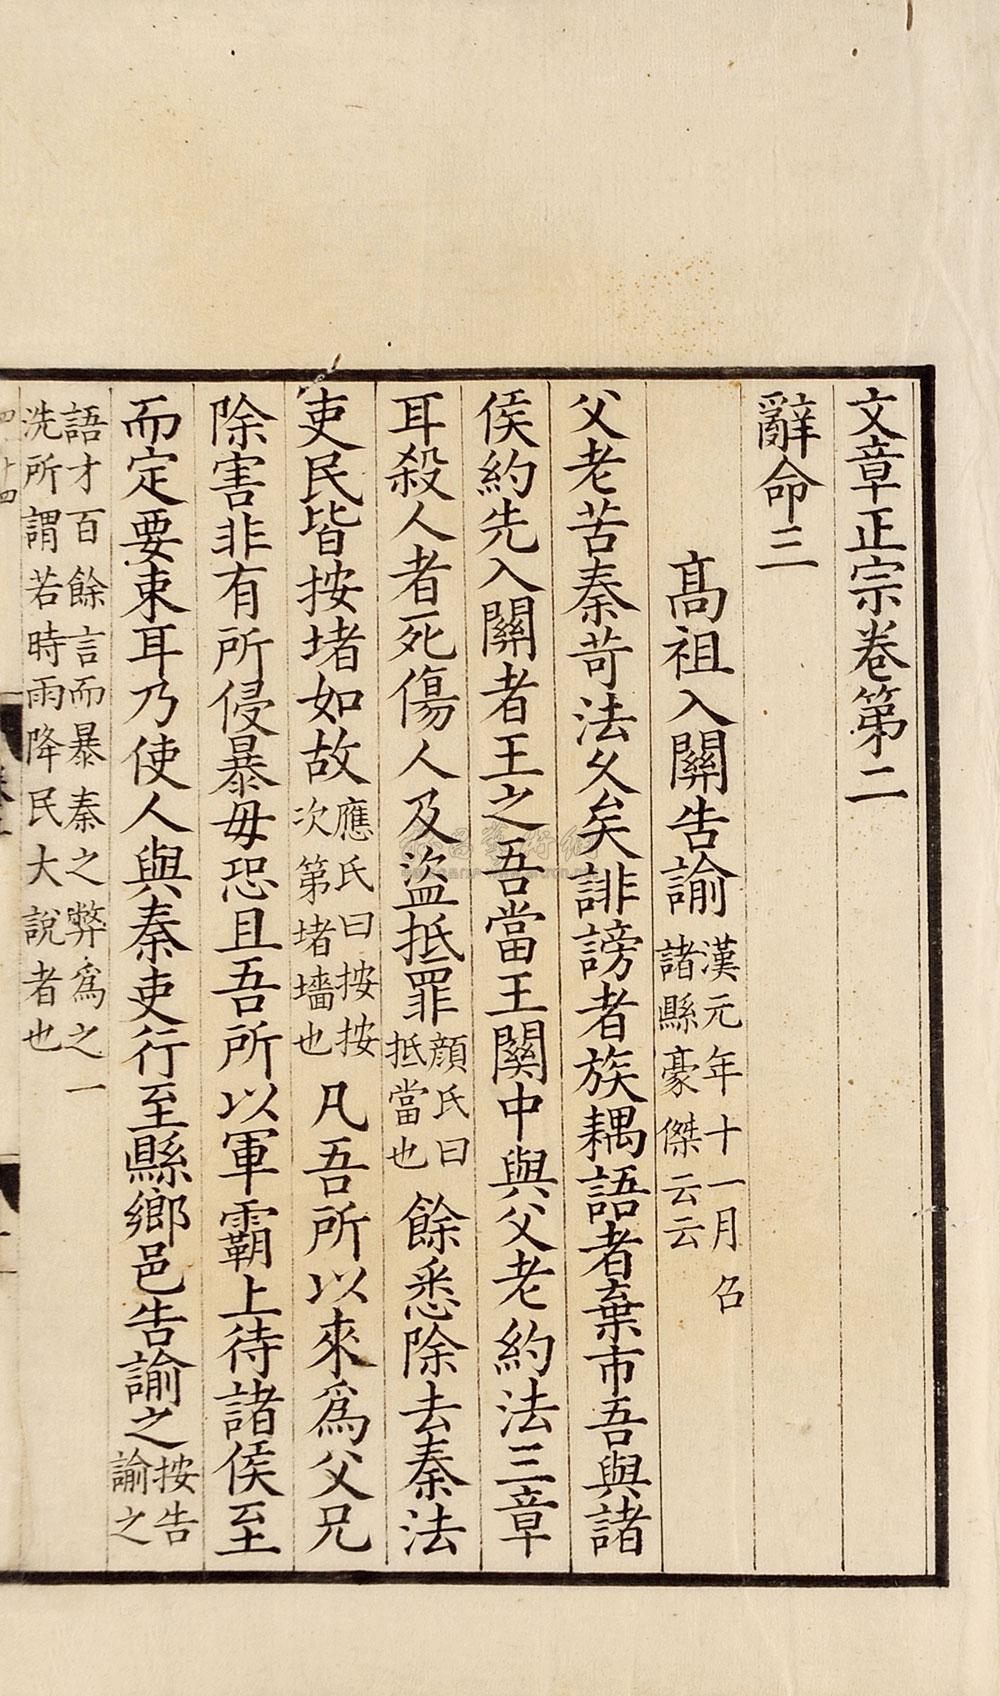 文章正宗卷第二
辭命三
高祖入關告諭漢元年十一月召諸縣豪傑云云
父老苦秦苛法久矣誹謗者族耦語者棄市吾與諸
侯約先入關者王之吾當王關中與父老約法三章
耳殺人者死傷人及盜抵罪顔氏曰抵當也餘悉除去秦法
吏民皆按堵如故應氏曰按按次第堵墻也凡吾所以來爲父兄
除害非有所侵暴毋恐且吾所以軍霸上待諸侯至
而定要束耳乃使人與秦吏行至縣鄉邑告諭之按告諭之
語才百餘言而暴秦之弊爲之一洗所謂若時雨降民大說者也